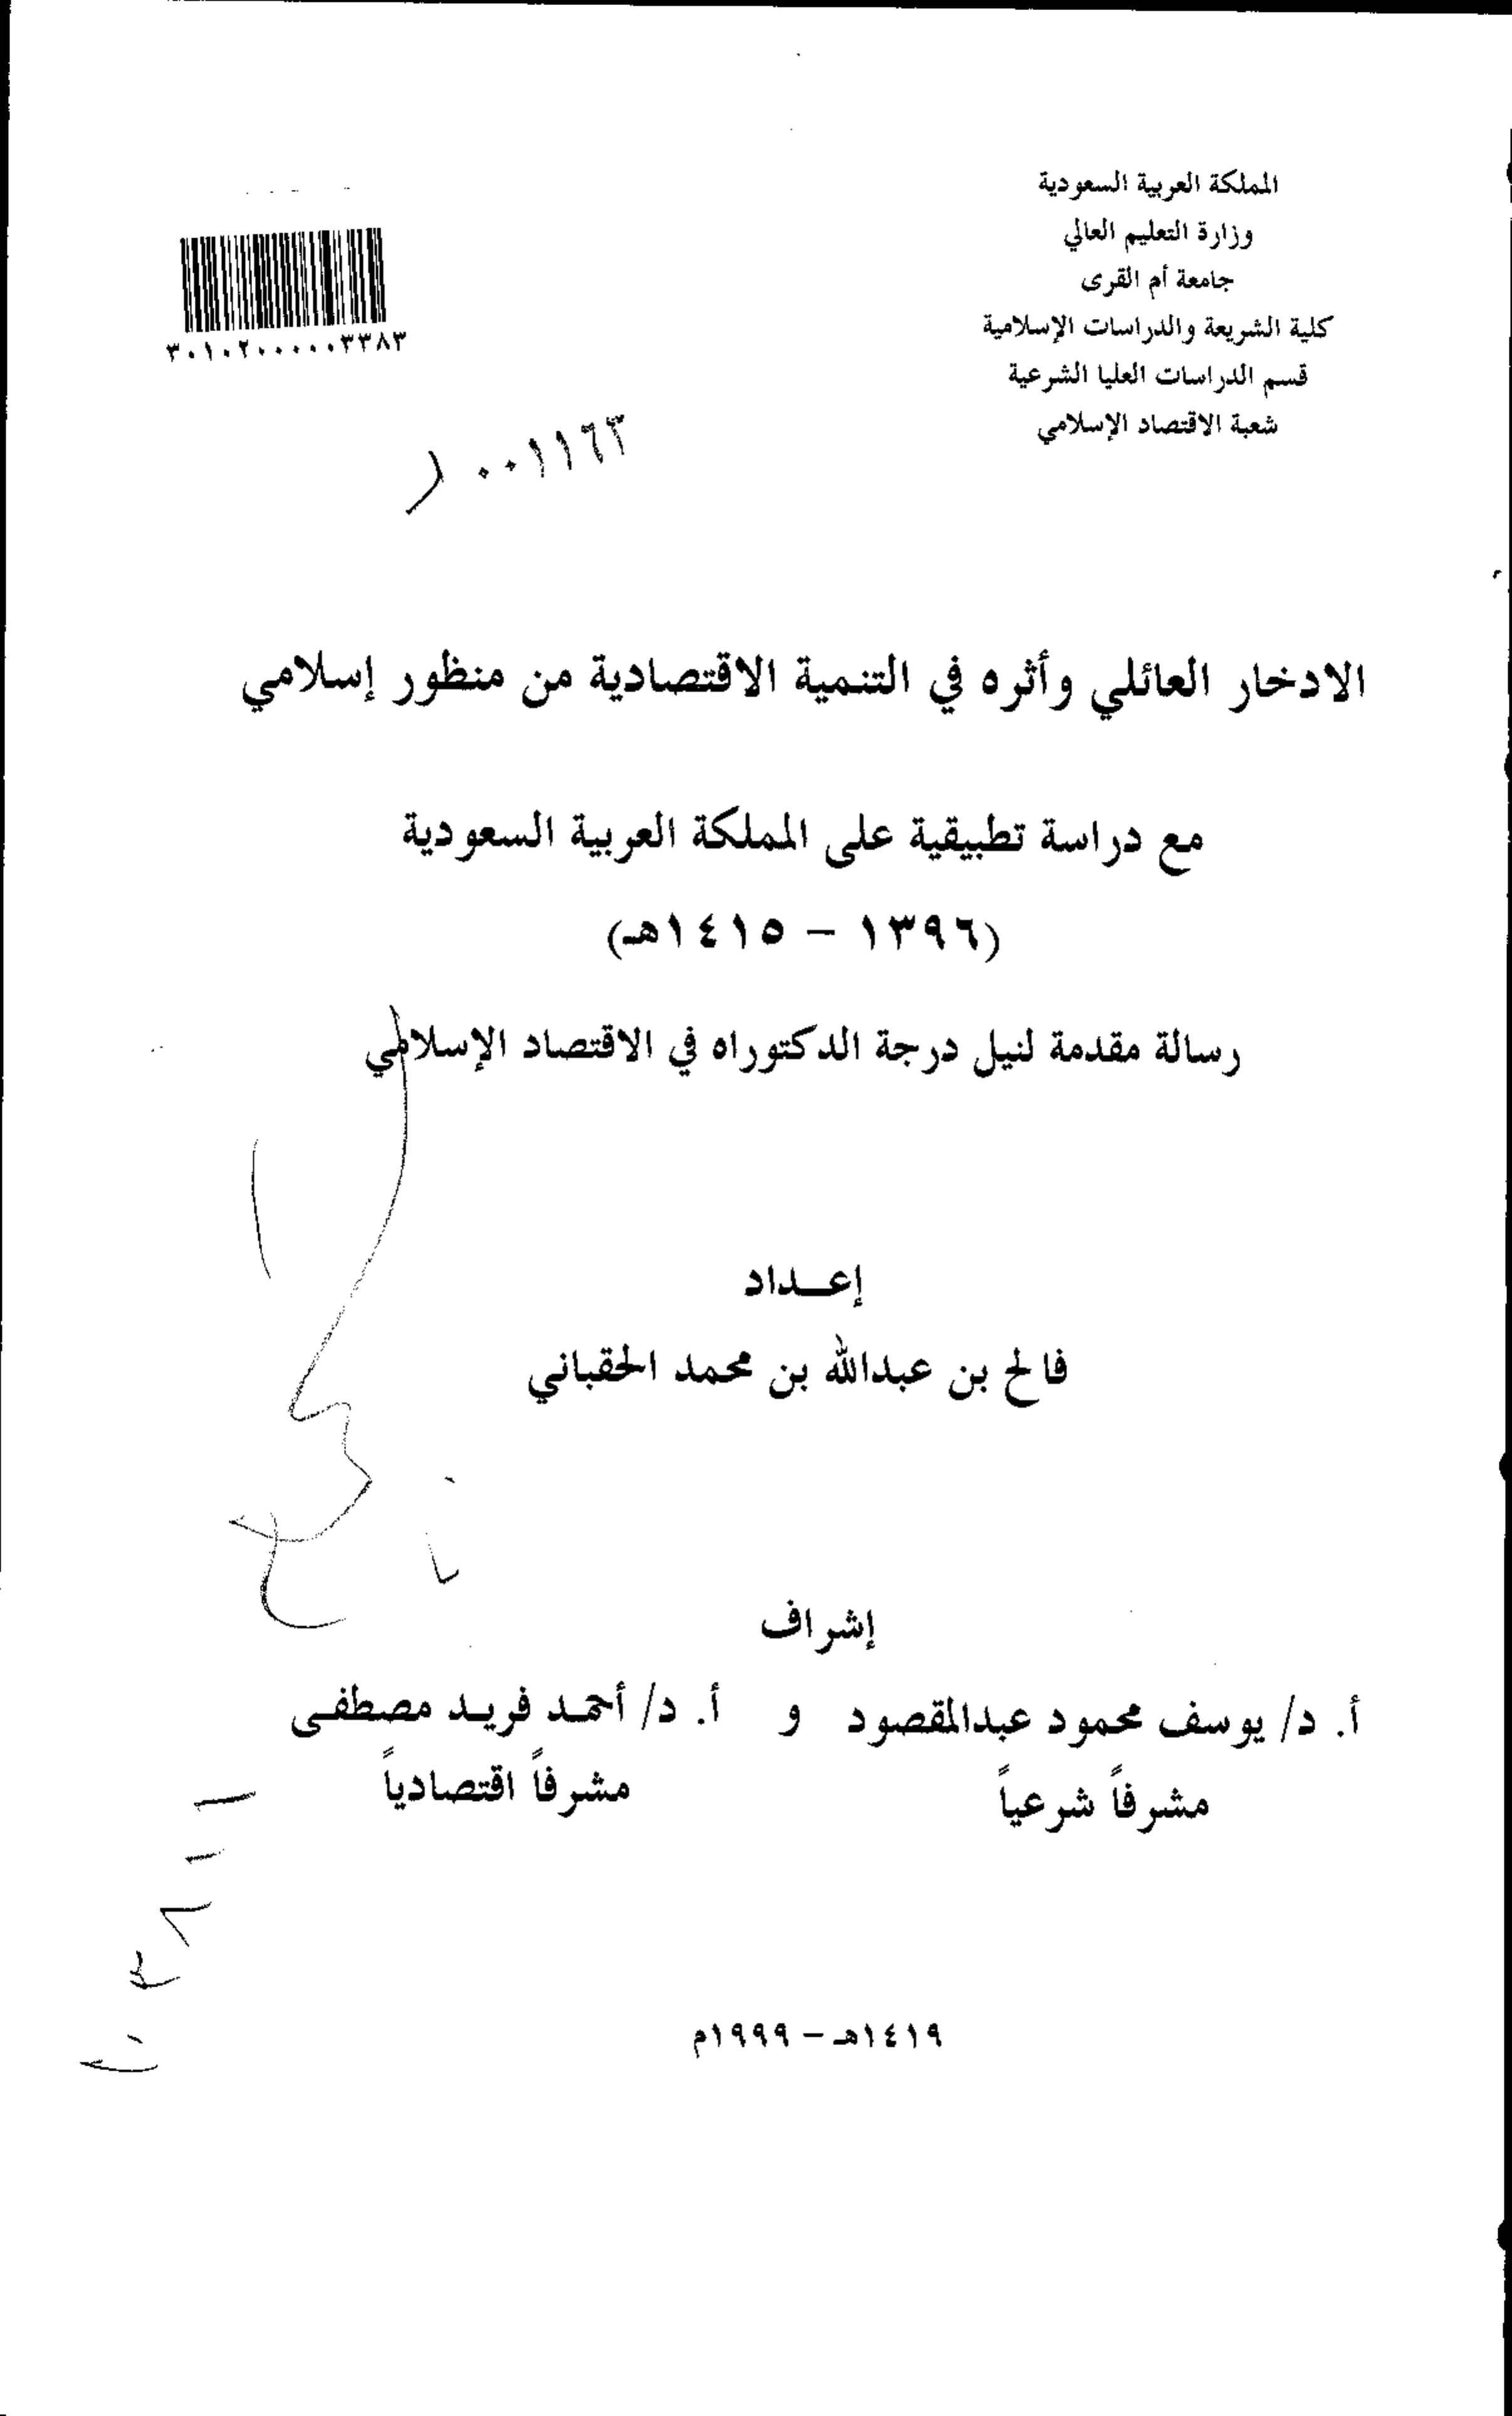 المملكة العربية السعودية
وزارة التعليم العالي
جامعة أم القرى
كلية الشريعة والدراسات الإسلامية
قسم الدراسات العليا الشرعية
شعبة الاقتصاد الإسلامي
٣٠١٠٢٠٠٠٠٠٣٣٨٣
٠٠١١٦٣
الادخار العائلي وأثره في التنمية الاقتصادية من منظور إسلامي
مع دراسة تطبيقية على المملكة العربية السعودية
(١٣٩٦ – ١٤١٥هـ)
رسالة مقدمة لنيل درجة الدكتوراه في الاقتصاد الإسلامي
إعـــداد
فالح بن عبدالله بن محمد الحقباني
إشراف
أ. د/ يوسف محمود عبدالمقصود و أ. د/ أحمـد فريـد مصطفـى
مشرفاً شرعياً مشرفاً اقتصادياً
١٤١٩هـ – ١٩٩٩م